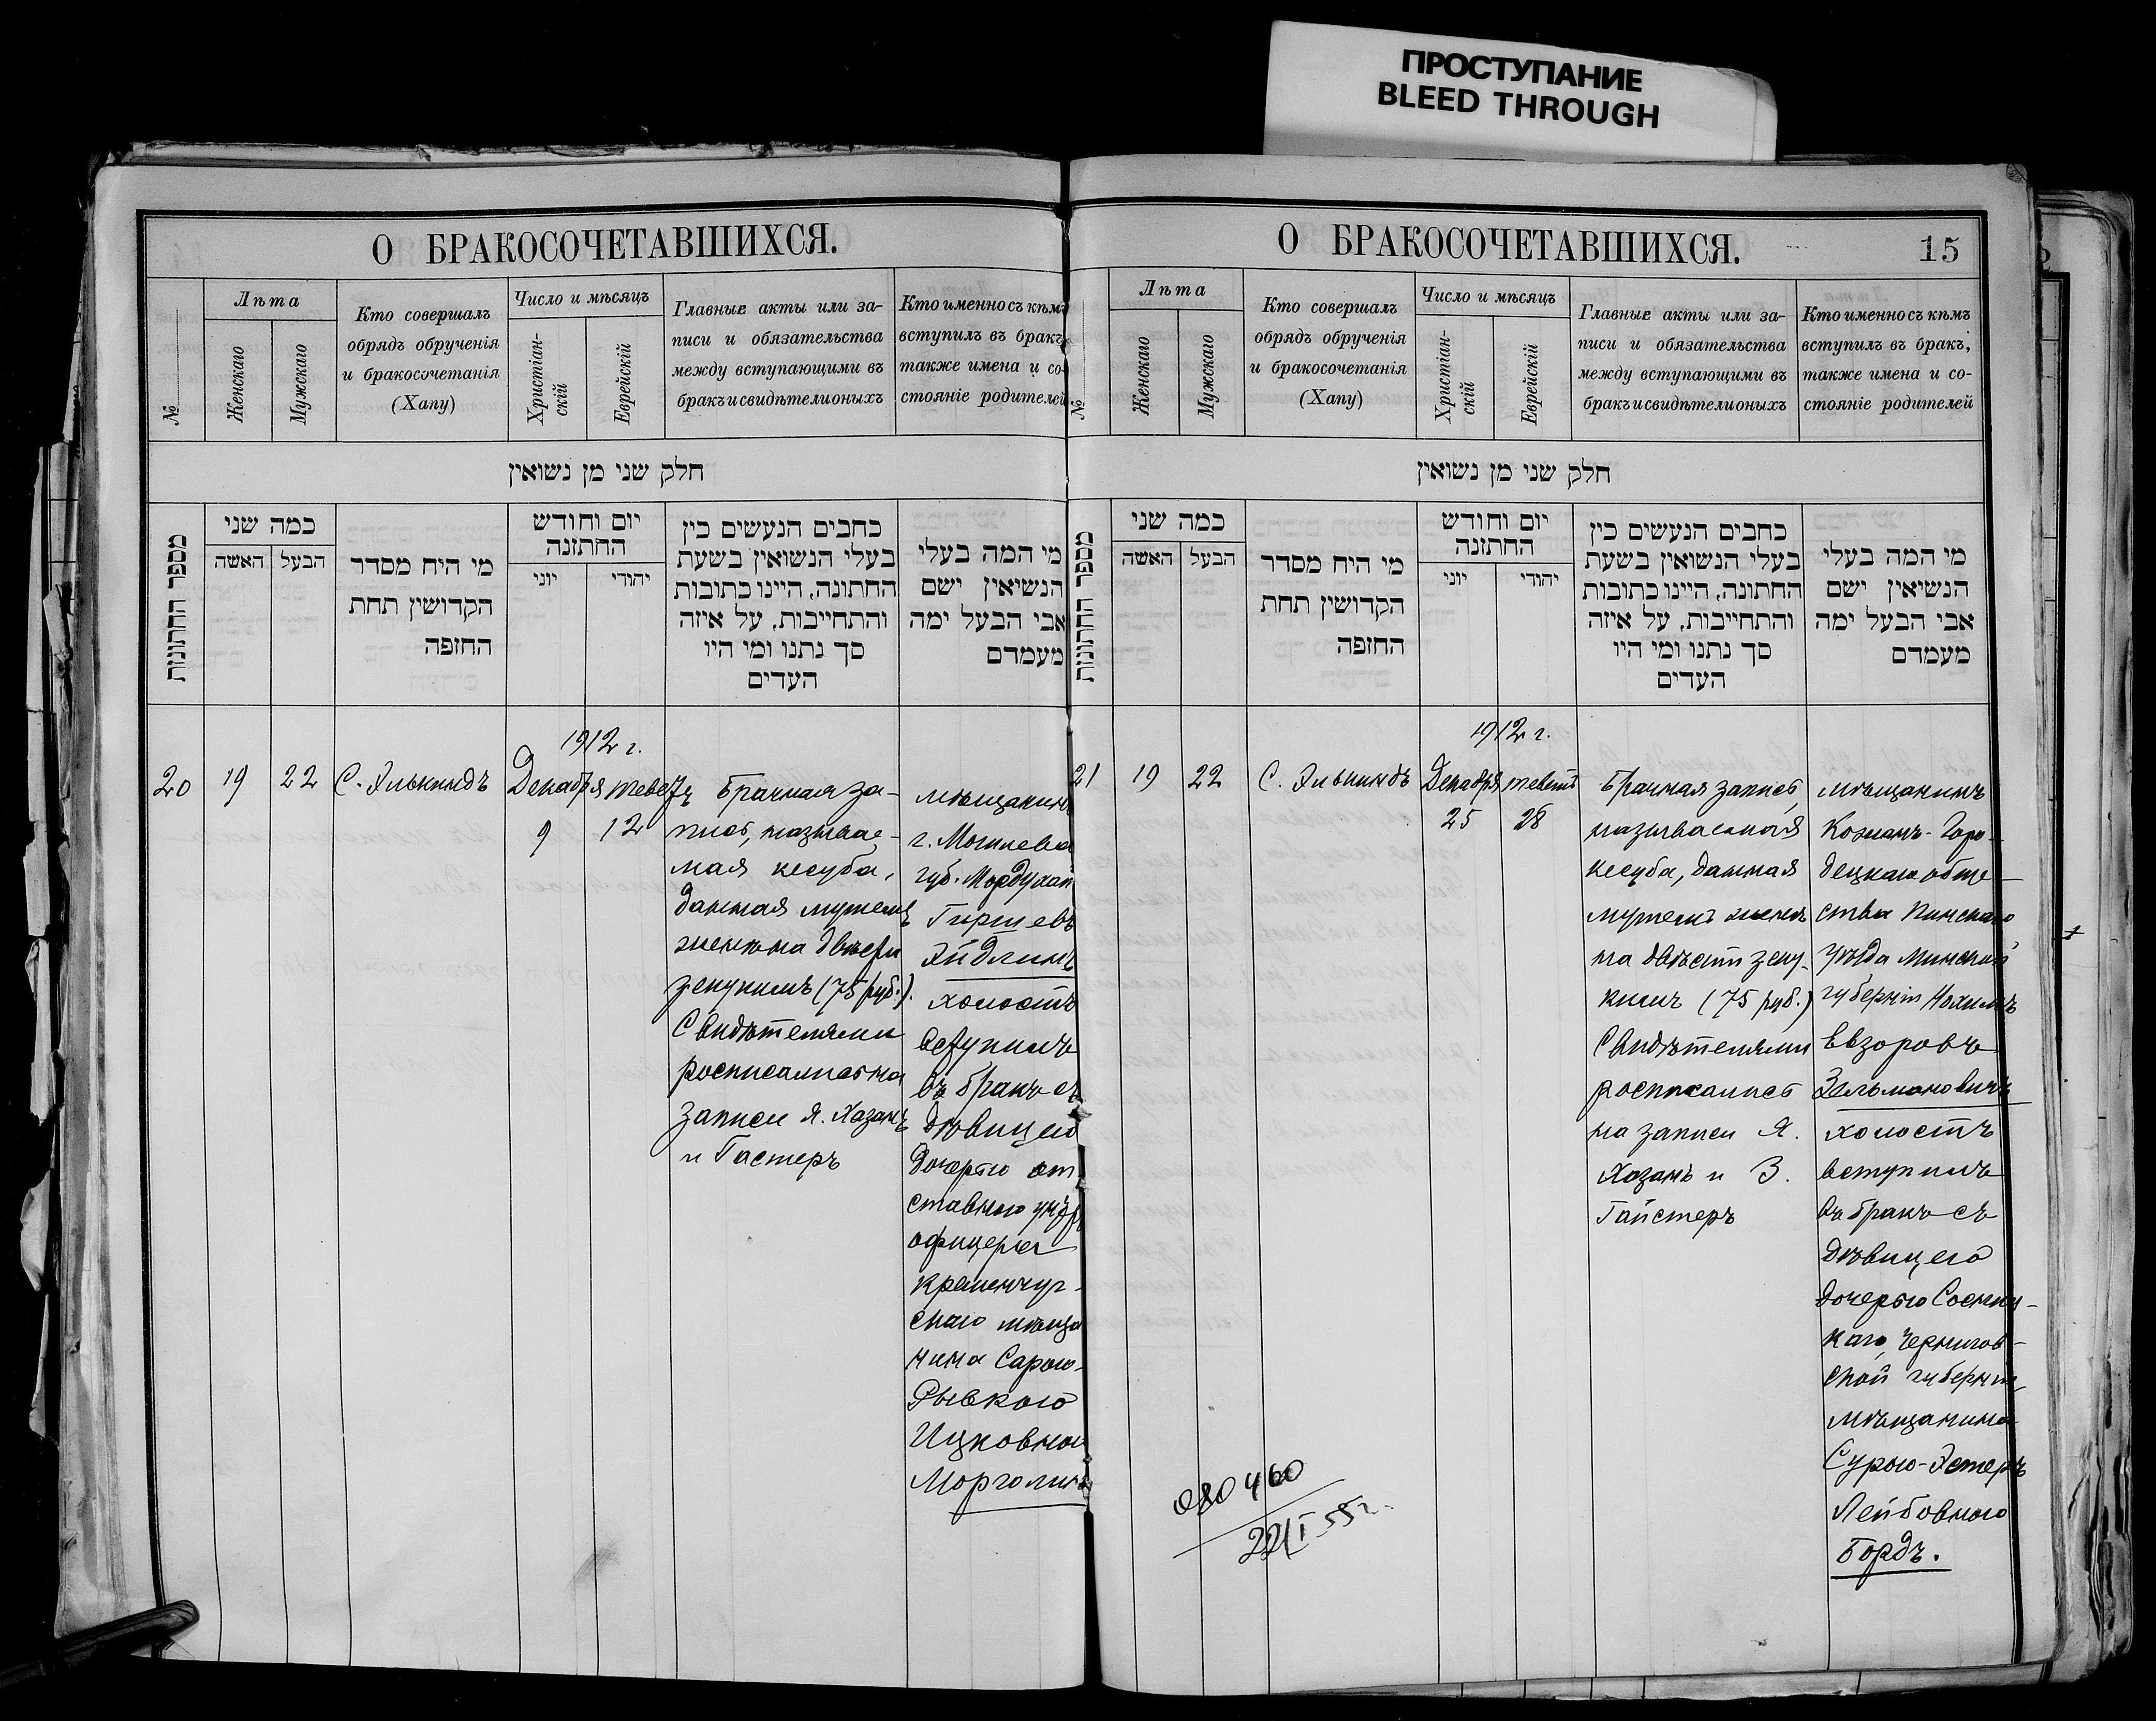 ПРОСТУПАНИЕ
BLEED THROUGH
О БРАКОСОЧЕТАВШИХСЯ.
№
Лѣта
Женскаго
Мужскаго
Кто совершалъ
обрядъ обрученія
и бракосочетанія
(Хапу)
Число и мѣсяцъ
Христіан-
скій
Еврейскій
Главные акты или за-
писи и обязательства
между вступающими въ
бракъ и свидѣтели оныхъ
Кто именно съ кѣмъ
вступилъ въ бракъ,
также имена и со-
стояніе родителей
חלק שני מן נשואין
מספר החתונות
כמה שני
האשה
הבעל
מי היח מסדר
הקדושין תחת
החופה
יום וחודש
החתונה
יוני
יהודי
כתבים הנעשים בין
בעלי הנשואין בשעת
החתונה, היינו כתובות
והתחייבות, על איזה
סך נתנו ומי היו
העדים
מי המה בעלי
הנשיאין ישם
אבי הבעל ימה
מעמדם
1912 г.
20
19
22
С. Элькиндъ
Декабря
9
Теветъ
12
Брачная за-
пись, называе-
мая кесуба,
данная мужемъ
женѣ на двѣсти
зекукимъ (75 руб.).
Свидѣтелями
росписались на
записи Я. Хазанъ
и Гастеръ
мѣщанинъ
г. Могилева
губ. Мордухай
Гиршевъ
Эйдлинъ
холостъ
вступилъ
въ бракъ съ
дѣвицею
дочерью от
ставного унтеръ
офицера
кременчуг-
скаго мѣща
нина Сарою-
Рывкою
Ицковною
Марголинъ
О БРАКОСОЧЕТАВШИХСЯ.
15
№
Лѣта
Женскаго
Мужскаго
Кто совершалъ
обрядъ обрученія
и бракосочетанія
(Хапу)
Число и мѣсяцъ
Христіан-
скій
Еврейскій
Главные акты или за-
писи и обязательства
между вступающими въ
бракъ и свидѣтели оныхъ
Кто именно съ кѣмъ
вступилъ въ бракъ,
также имена и со-
стояніе родителей
חלק שני מן נשואין
מספר החתונות
כמה שני
האשה
הבעל
מי היח מסדר
הקדושין תחת
החופה
יום וחודש
החתונה
יוני
יהודי
כתבים הנעשים בין
בעלי הנשואין בשעת
החתונה, היינו כתובות
והתחייבות, על איזה
סך נתנו ומי היו
העדים
מי המה בעלי
הנשיאין ישם
אבי הבעל ימה
מעמדם
1912 г.
21
19
22
С. Элькиндъ
Декабря
25
Теветъ
28
Брачная запись,
называемая
кесуба, данная
мужемъ женѣ
на двѣсти зеку-
кимъ (75 руб.)
Свидѣтелями
росписались
на записи Я.
Хазанъ и З.
Гайстеръ
мѣщанинъ
Кожанъ-Горо-
децкаго обще-
ства Пинскаго
уѣзда Минской
губерніи Нохимъ
Ввзоровъ
Зельмановичъ
холостъ
вступилъ
въ бракъ съ
дѣвицею
дочерью Сосниц-
каго, Чернигов-
ской губерніи,
мѣщанина
Сурою-Эстеръ
Лейбовною
Бордъ.
080460
22/I 55 г.